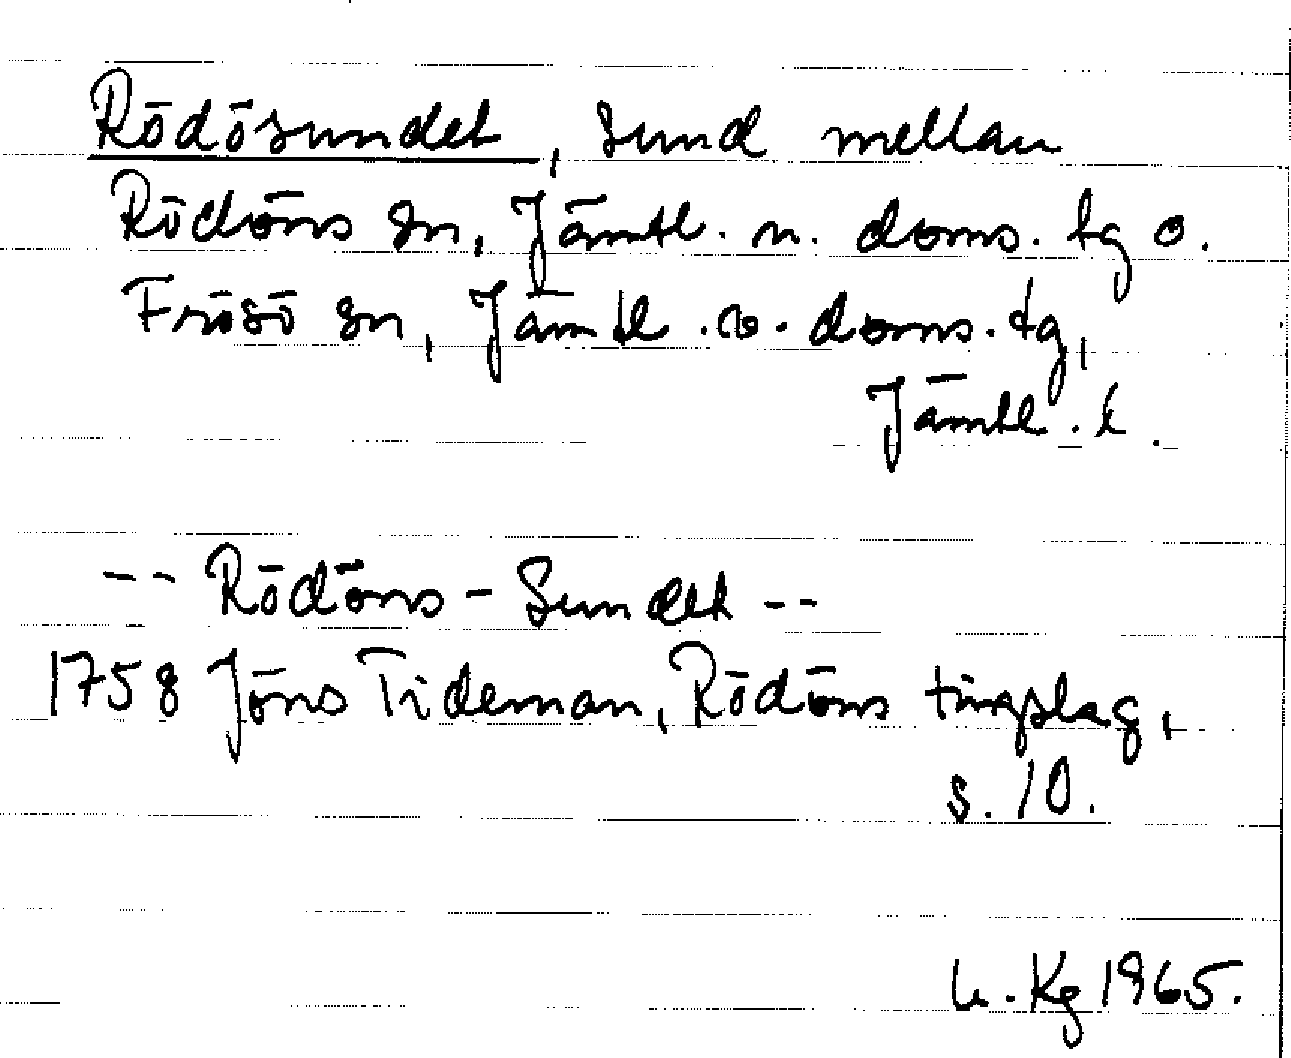 Rödösundet, sund mellan
Rödöns sn, Jämtl. n. doms. tg o.
Frösö sn, Jämtl. v. doms. tg,
Jämtl. l.
-- Rödöns-Sundet --
1758 Jöns Tideman, Rödöns tingslag,
s. 10.
Kg 1965.